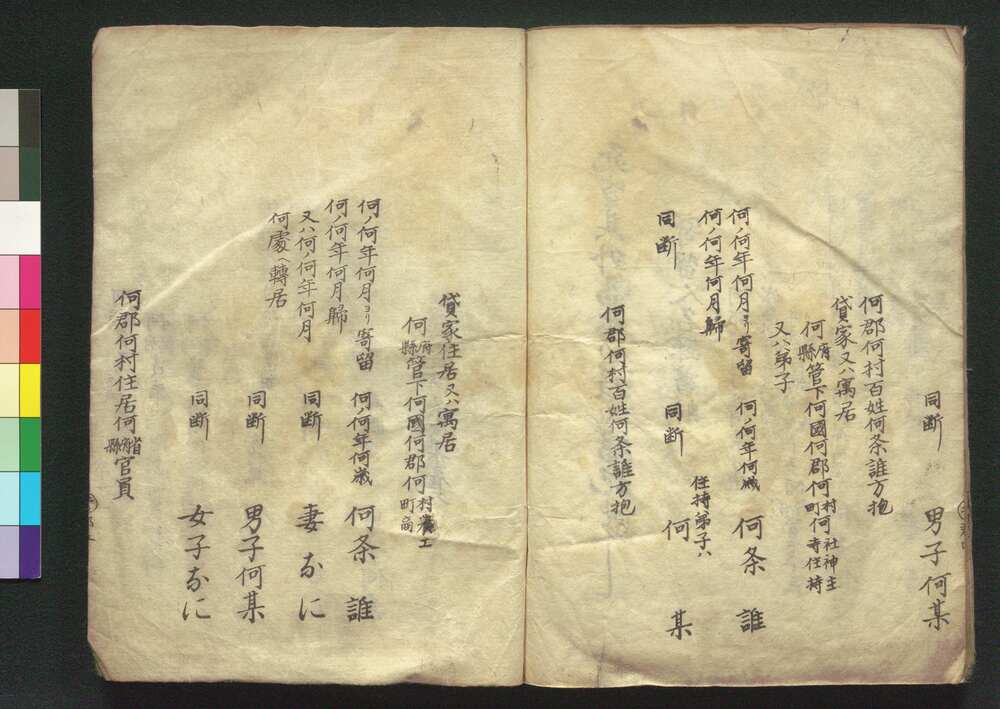 同断 男子何某
何郡何村百姓何条誰方抱
貸家又ハ寓居
何府縣管下何國何郡何村町何社神主寺住持
又ハ弟子
何ノ何年何月ヨリ寄留 何ノ何年何歳 何条誰
何ノ何年何月歸
住持弟子ハ
同断 同断 何某
何郡何村百姓何条誰方抱
貸家住居又ハ寓居
何府縣管下何國何郡何村町農工商
何ノ何年何月ヨリ寄留 何ノ何年何歳 何条誰
何ノ何年何月歸
又ハ何ノ何年何月 同断 妻なに
何處ヘ轉居
同断 男子何某
同断 女子なに
何郡何村住居何省府縣官員